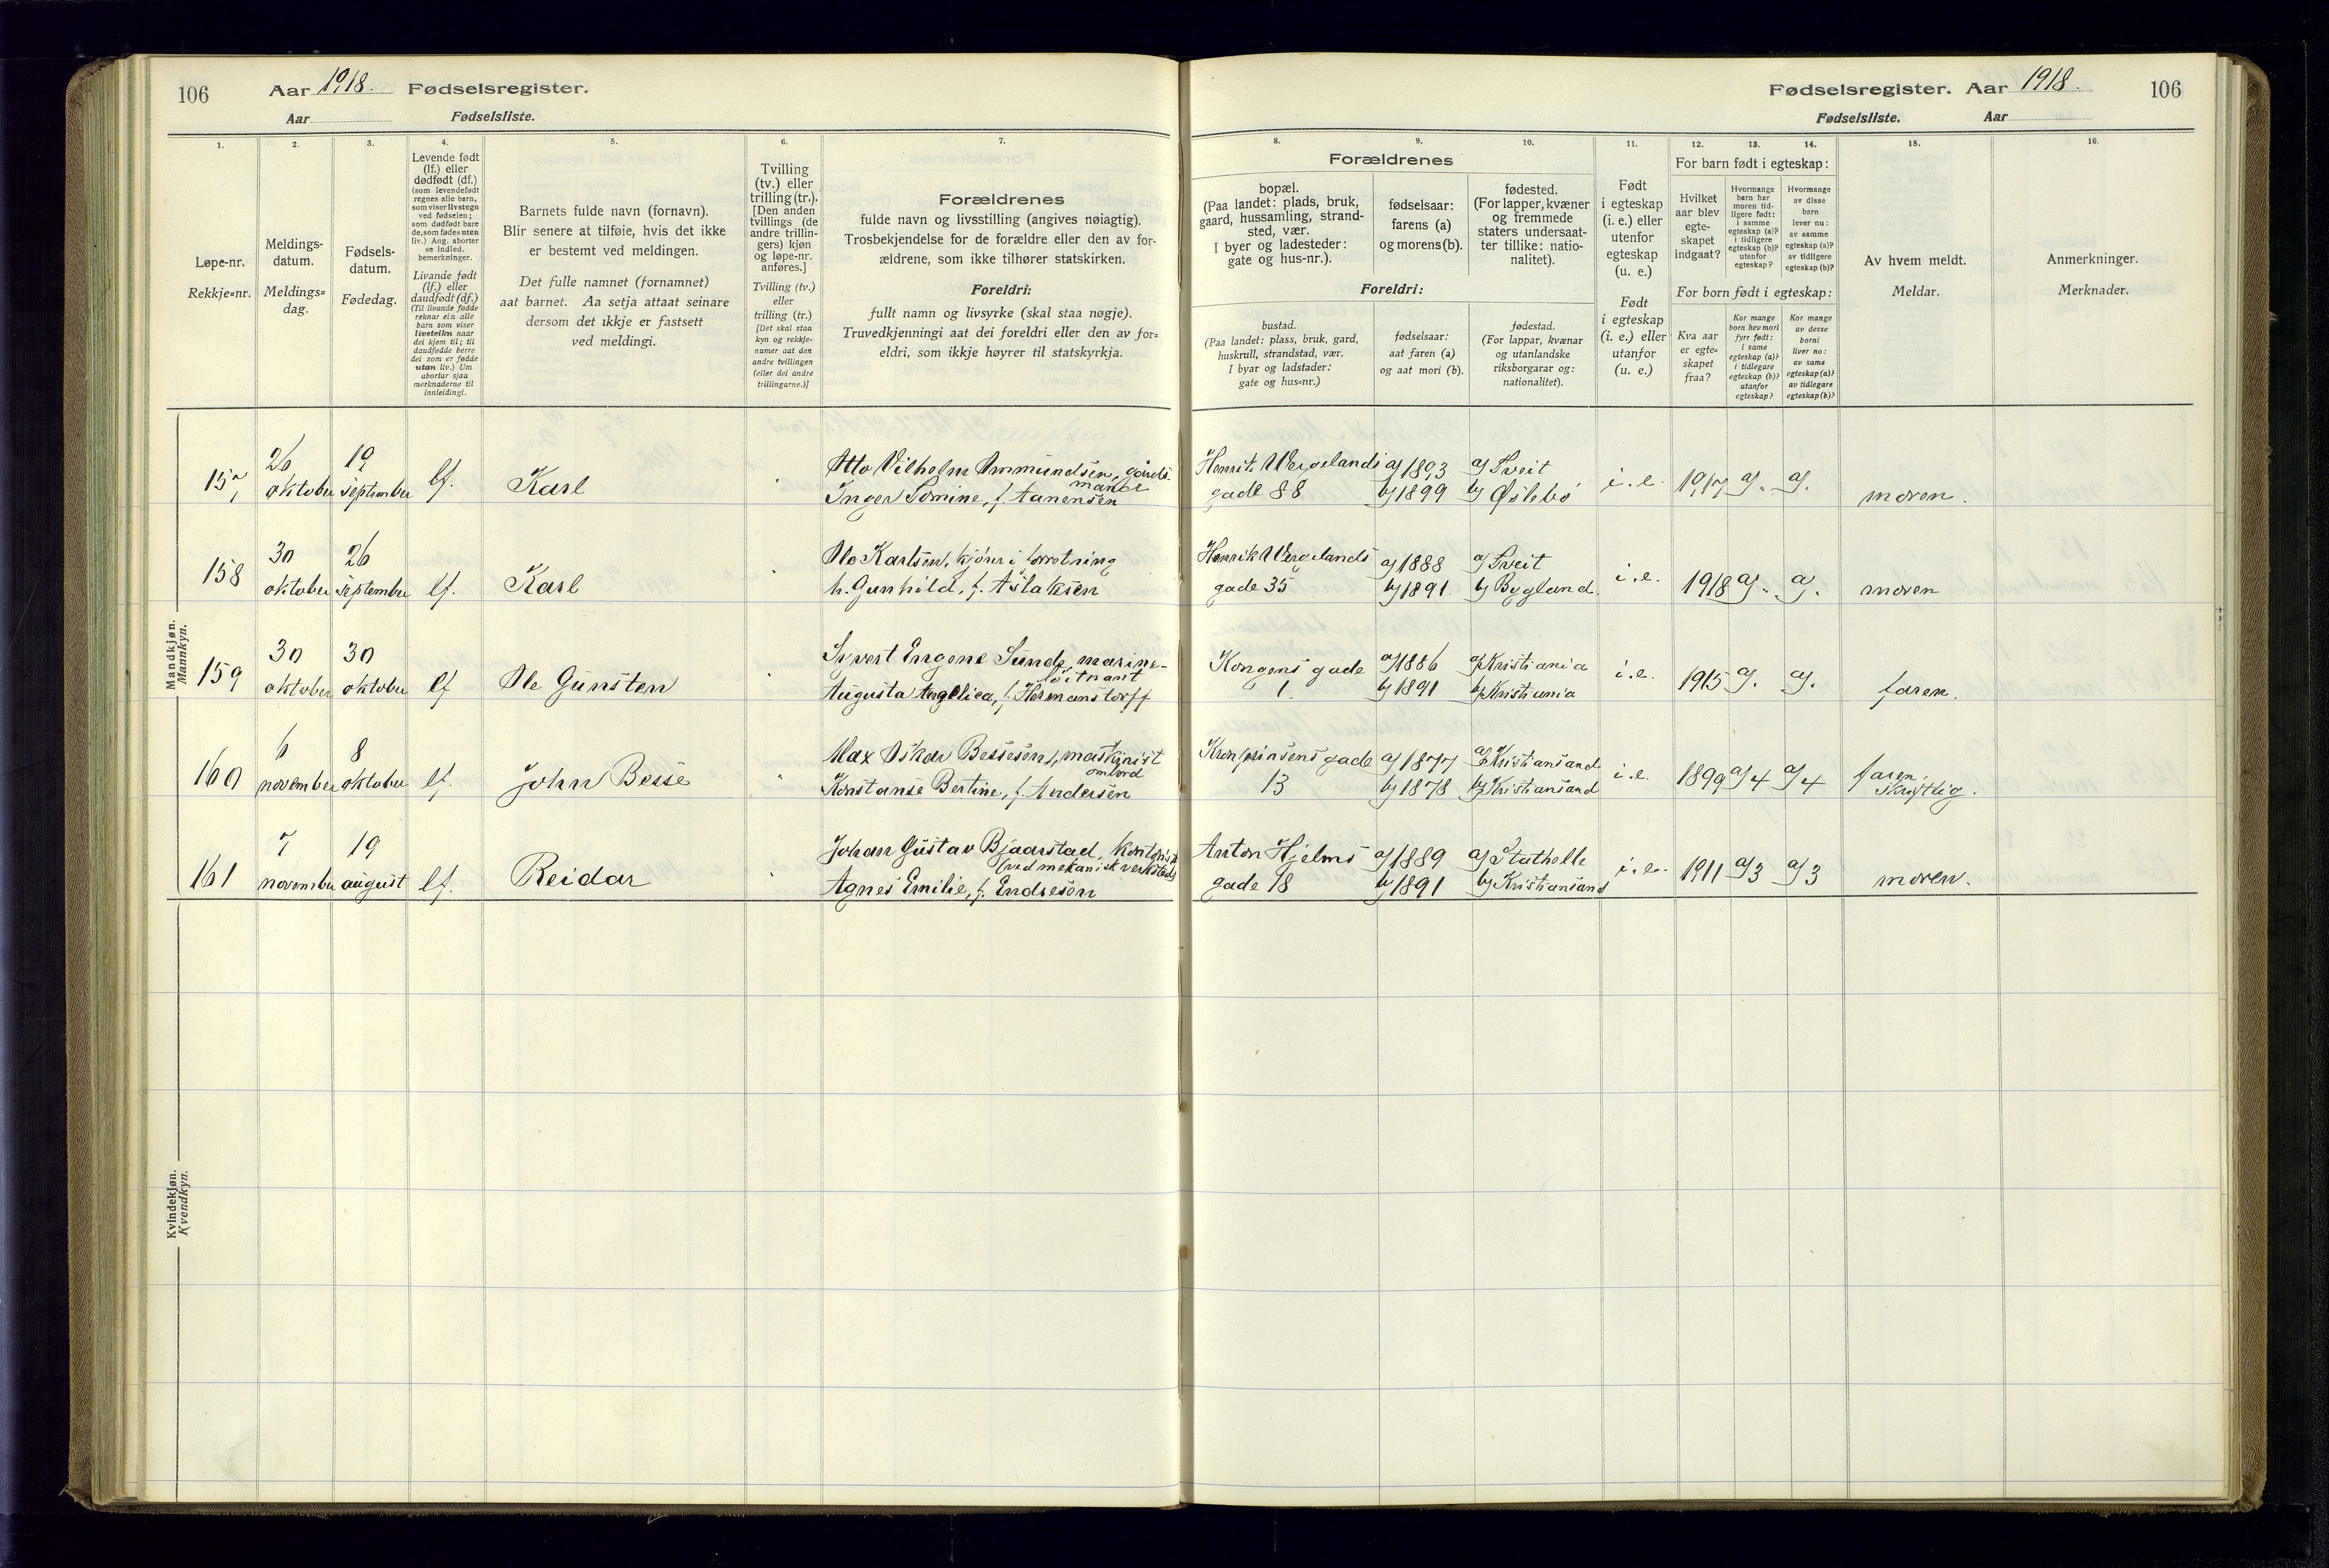 106
Aar 1918. Fødselsregister.
Aar
Fødselsliste.
1.
2.
3.
4.
5.
6.
7.
Løpe-nr.
Rekkje=nr.
Meldings-
datum.
Meldings=
dag.
Fødsels-
datum.
Fødedag.
Levende født
(lf.) eller
dødfødt (df.)
(som levendefødt
regnes alle barn,
som viser livstegn
ved fødselen;
som dødfødt bare
de, som fødes uten
liv.) Ang. aborter
se indled.
bemerkninger.
Livande født
(lf.) eller
daudfødt (df.)
(Til livande fødde
reknar ein alle
barn som viser
livsteikn naar
dei kjem til; til
daudfødde berre
dei som er fødde
utan liv.) Um
abortar sjaa
merknaderne til
innleidingi.
Barnets fulde navn (fornavn).
Blir senere at tilføie, hvis det ikke
er bestemt ved meldingen.
Det fulle namnet (fornamnet)
aat barnet. Aa setja attaat seinare
dersom det ikkje er fastsett
ved meldingi.
Tvilling
(tv.) eller
trilling (tr.).
[Den anden
tvillings (de
andre trillin-
gers) kjøn
og løpe-nr.
anføres.]
Tvilling (tv.)
eller
trilling (tr.)
[Det skal staa
kyn og rekkje-
numer aat den
andre tvillingen
(eller dei andre
trillingarne.)]
Forældrenes
fulde navn og livsstilling (angives nøiagtig).
Trosbekjendelse for de forældre eller den av for-
ældrene, som ikke tilhører statskirken.
Foreldri:
fullt namn og livsyrke (skal staa nøgje).
Truvedkjenningi aat dei foreldri eller den av for=
eldri, som ikkje høyrer til statskyrkja.
Mandkjøn.
Mannkyn.
157
26
oktober
19
september
lf.
Karl
Otto Vilhelm Ommundsen, gårds-
mand
Inger Tomine, f. Aanensen
158
30
oktober
26
september
lf.
Karl
Olo Karlsen, kjører i forrotning
h. Gunhild, f. Aslaksen
159
30
oktober
30
oktober
lf
Ole Gunsten
Syvert Eugene Sunde, marine-
løitnant
Augusta Angelica, f. Hermanstorff
160
6
november
8
oktober
lf.
John Besse
Max Oskar Bessesen, maskinist
ombord
Konstanse Bertine, f. Andersen
161
7
november
19
august
lf.
Reidar
Johan Gustav Bjaarstad, kontorist
(ved mekanisk verksted)
Agnes Emilie, f. Endresen
Kvindekjøn.
Kvendkyn.
Fødselsregister. Aar 1918.
106
Fødselsliste.
Aar
8.
9.
10.
11.
12.
13.
14.
15.
16.
Forældrenes
bopæl.
(Paa landet: plads, bruk,
gaard, hussamling, strand-
sted, vær.
I byer og ladesteder:
gate og hus-nr.).
fødselsaar:
farens (a)
og morens (b).
fødested.
(For lapper, kvæner
og fremmede
staters undersaat-
ter tillike: natio-
nalitet).
Foreldri:
bustad.
(Paa landet: plass, bruk, gard,
huskrull, strandstad, vær.
I byar og ladstader:
gate og hus=nr.)
fødselsaar:
aat faren (a)
og aat mori (b).
fødestad.
(For lappar, kvænar
og utanlandske
riksborgarar og:
nationalitet).
Født
i egteskap
(i. e.) eller
utenfor
egteskap
(u. e.)
Født
i egteskap
(i. e.) eller
utanfor
(u. e.)
For barn født i egteskap:
Hvilket
aar blev
egte-
skapet
indgaat?
Hvormange
barn har
moren tid-
ligere født:
i samme
egteskap (a)?
i tidligere
egteskap (b)?
utenfor
egteskap?
Hvormange
av disse
barn
lever nu:
av samme
egteskap (a)?
av tidligere
egteskap (b)?
For born født i egteskap:
Kva aar
er egte=
skapet
fraa?
Kor mange
born hev mori
fyrr født:
i same
egteskap (a)?
i tidlegare
egteskap (b)?
utanfor
egteskap?
Kor mange
av desse
borni
liver no:
av same
egteskap (a)?
av tidlegare
egteskap (b)?
Av hvem meldt.
Meldar.
Anmerkninger.
Merknader.
Henrik Wergelands
gade 88
a) 1893
b) 1899
a) Tveit
b) Øslebø
i. e.
1917
a) -
a) -
moren.
Henrik Wergelands
gade 35
a) 1888
b) 1891
a) Tveit
b) Bygland.
i. e.
1918
a) -
a) -
moren
Kongens gade
1.
a) 1886
b) 1891
a) Kristiania
b) Kristiania
i. e.
1915
a) -
a) -
faren.
Kronprinsens gade
13
a) 1877
b) 1878
a) Kristiansand
b) Kristiansand
i. e.
1899
a) 4
a) 4
faren,
skriftlig.
Anton Hjelms
gade 18
a) 1889
b) 1891
a) Stathelle
b) Kristiansand
i. e.
1911
a) 3
a) 3
moren.